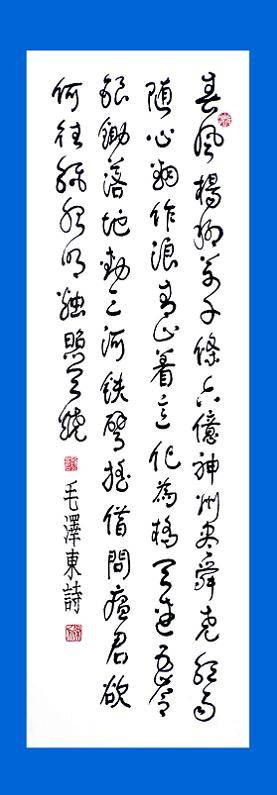 春風楊柳萬千條六億神州盡舜堯紅雨
随心翻作浪青山着意化為橋天連五嶺
銀鋤落地動三河鉄臂搖借問瘟君欲
何往紙船明燭照天燒
毛澤東詩